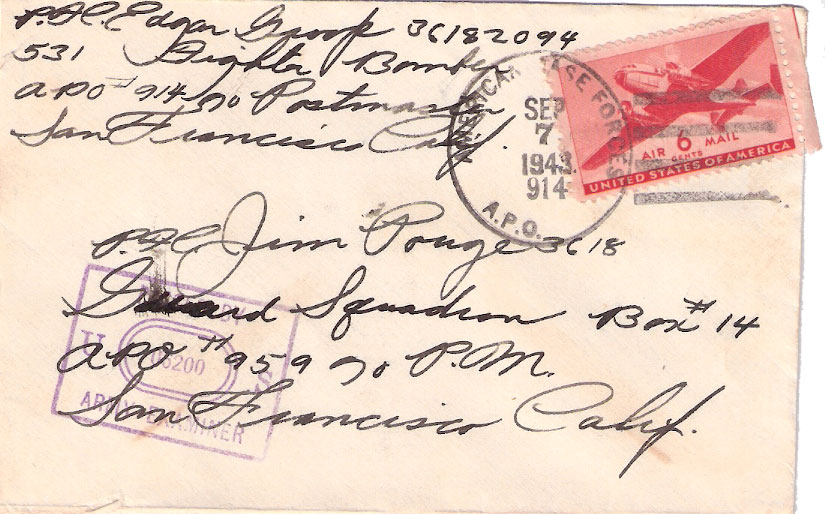 P.F.C. Edgar Groop 36182094
531 Fighter Bomber
APO # 914 c/o Postmaster
San Francisco Calif.
AMERICAN BASE FORCES
SEP
7
1943
914
A.P.O.
AIR 6 MAIL
CENTS
UNITED STATES OF AMERICA
P.F.C. Jim Pouge 3618
Guard Squadron Box # 14
APO # 959 c/o P.M.
San Francisco Calif.
BY
U. S.
06200
ARMY EXAMINER